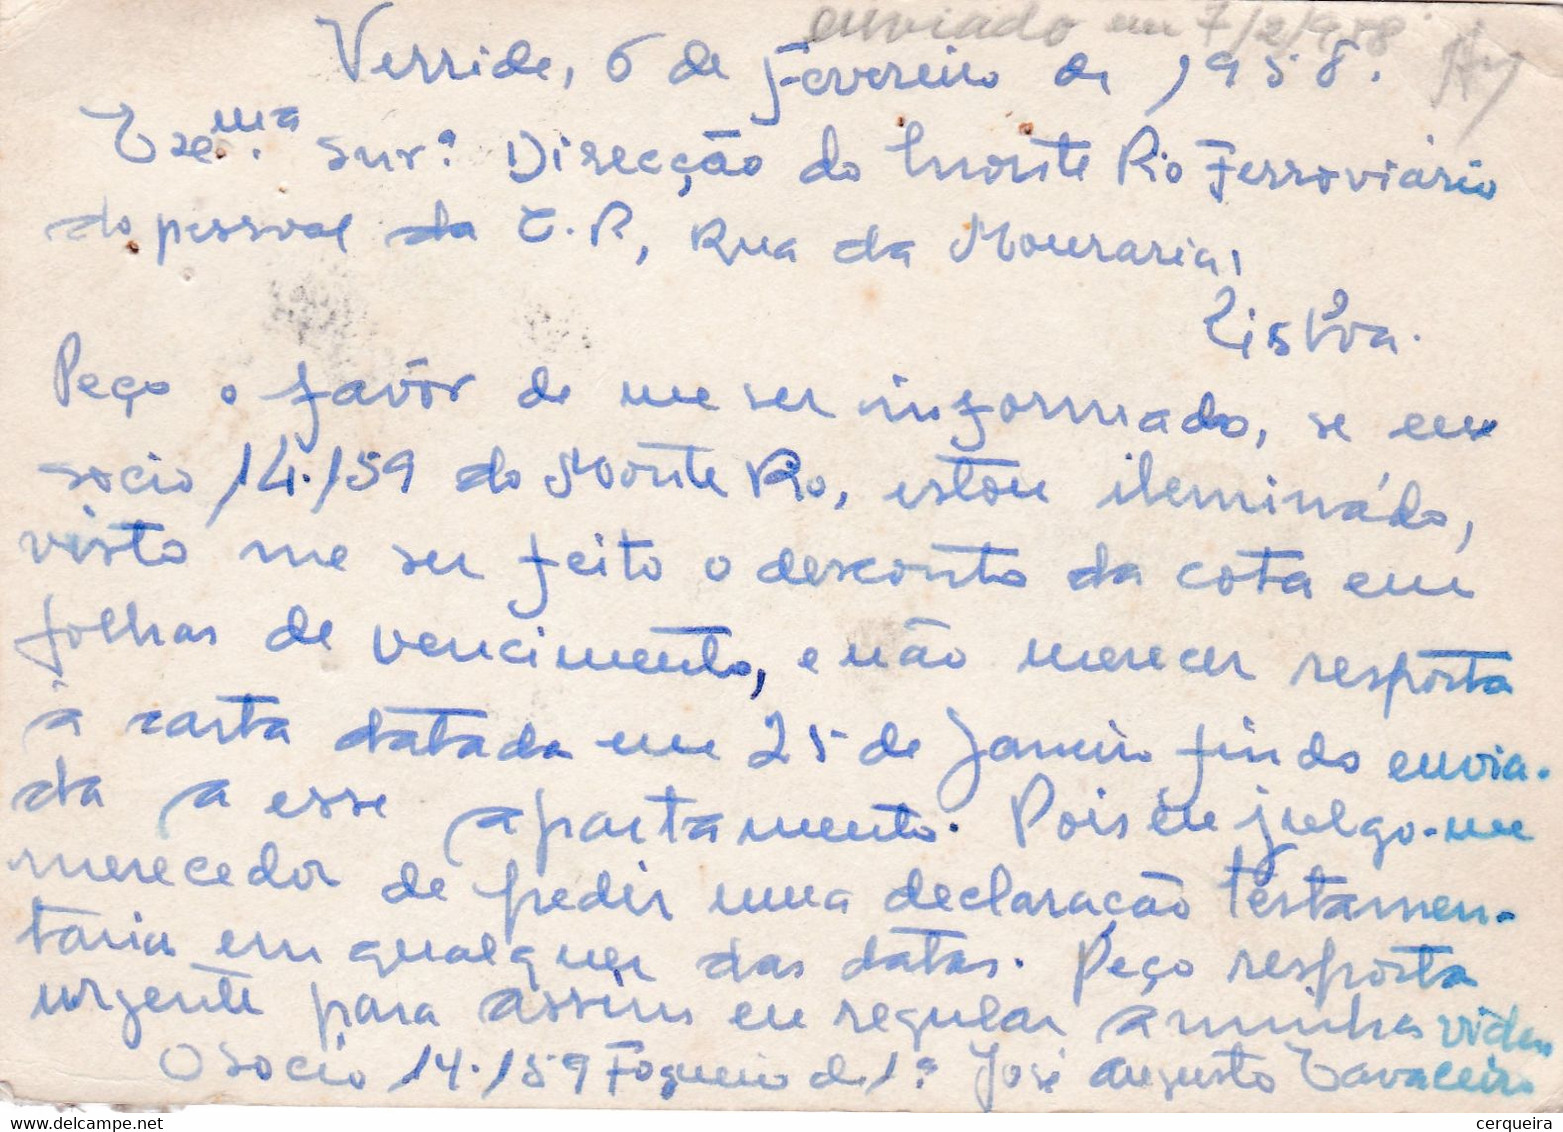 enviado em 7/2/958
Verride, 6 de Fevereiro de 1958.
Exe.ma Snr.ª Direcção do Monte Pio Ferroviário
do pessoal da C.P, Rua da Mouraria,
Lisboa.
Peço o favôr de me ser informado, se eu
socio 14.159 do Monte Pio, estou ileminádo,
visto me ser feito o desconto da cota em
folhas de vencimento, e não merecer resposta
á carta datada em 25 de Janeiro findo envia-
da a esse apartamento. Pois eu julgo-me
merecedor de pedir uma declaração testamen-
taria em qualquer das datas. Peço resposta
urgente para assim eu regular a minha vida
O socio 14.159 Fogueiro de 1ª José Augusto Cavaleiro
cerqueira